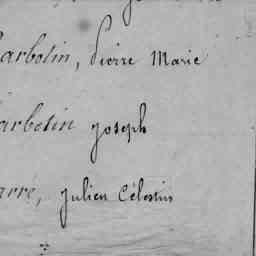 arbotin, Pierre Marie
arbotin Joseph
arré, Julien Célestin